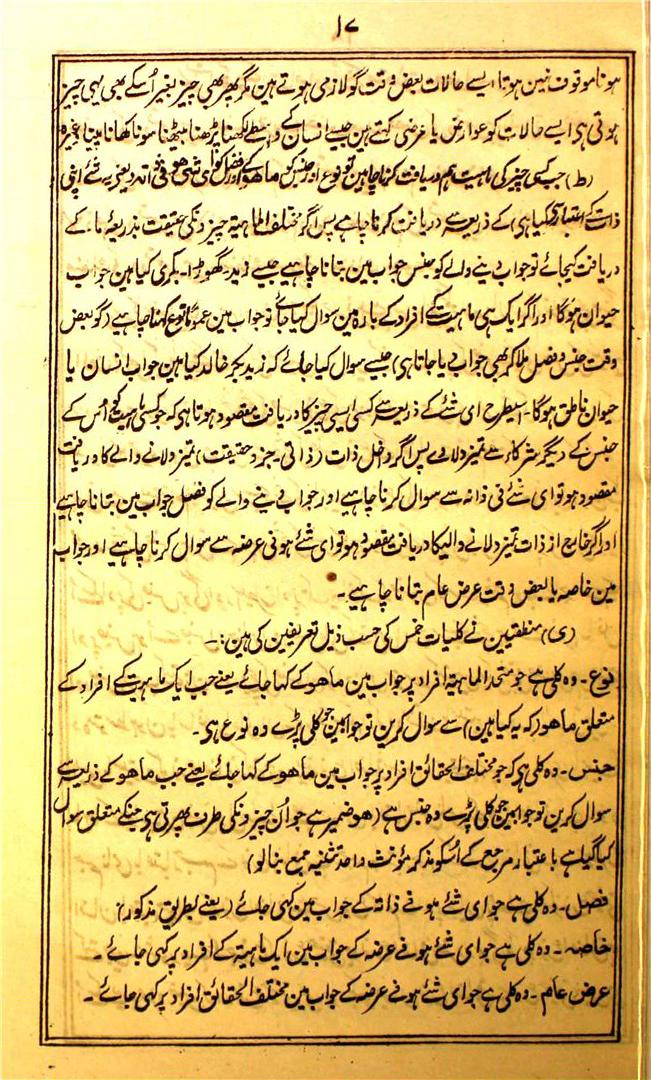 ۱۷
ہونا موقوف نہین ہوتا ایسے حالات بعض وقت گو لازمی ہوتے ہین مگر پھر بھی چیز بغیر اُسکے بھی یہی چیز
ہوتی ہی ایسے حالات کو عوارض یا عرضی کہتے ہین جیسے انسان کے واسطے لکھنا پڑھنا بیٹھنا سونا کھانا پینا وغیرہ
(ط) جب کسی چیز کی ماہیت ہم دریافت کرنا چاہین تو نوع اور جنس کو ماھو کے اور فصل کو ای شئ ھو فی ذاتہ (یعنی یہ شئے اپنی
ذات کے اعتبار سے کیا ہی) کے ذریعہ سے دریافت کرنا چاہے پس اگر مختلف الماہیۃ چیزونکی حقیقت بذریعۂ ما۔ کے
دریافت کیجائے تو جواب دینے والے کو جنس جواب مین بتانا چاہیے جیسے زید۔ گھوڑا۔ بکری کیا ہین جواب
حیوان ہوگا اور اگر ایک ہی ماہیت کے افراد کے بارہ مین سوال کیا جائے تو جواب مین عموماً نوع کہنا چاہیے (گو بعض
وقت جنس و فصل ملا کر بھی جواب دیا جاتا ہی) جیسے سوال کیا جائے کہ زید بکر خالد کیا ہین جواب انسان یا
حیوان ناطق ہوگا۔ اسیطرح ای شئے کے ذریعہ سے کسی ایسی چیز کا دریافت مقصود ہوتا ہی کہ جو کسی ماہیت کو اُس کے
جنس کے دیگر شرکاء سے تمیز دلاوے پس اگر داخل ذات (ذاتی۔ جزو حقیقت) تمیز دلانے والے کا دریافت
مقصود ہو تو ای شئے فی ذاتہ سے سوال کرنا چاہیے اور جواب دینے والے کو فصل جواب مین بتانا چاہیے
اور اگر خارج از ذات تمیز دلانے والیکا دریافت مقصود ہو تو ای شئے ہو فی عرضہ سے سوال کرنا چاہیے اور جواب
مین خاصہ یا بعض وقت عرض عام بتانا چاہیے۔
(ی) منطقیین نے کلیات خمس کی حسب ذیل تعریفین کی ہین:۔
نوع۔ وہ کلی ہے جو متحد الماہیۃ افراد پر جواب مین ماھو کے کہا جائے یعنے جب ایک ماہیت کے افراد کے
متعلق ماھو (کہ یہ کیا ہین) سے سوال کرین تو جوابمین جو کلی پڑے وہ نوع ہی۔
جنس۔ وہ کلی ہی کہ جو مختلف الحقائق افراد پر جواب مین ماھو کے کہا جائے یعنے جب ماھو کے ذریعہ سے
سوال کرین تو جوابمین جو کلی پڑے وہ جنس ہے (ھو ضمیر ہے جو اُن چیزونکی طرف پھرتی ہی جنکے متعلق سوال
کیا گیا ہے باعتبار مرجع کے اُسکو مذکر مؤنث واحد تثنیہ جمع بنا لو)
فصل۔ وہ کلی ہے جو ای شئے ہو فی ذاتہ کے جواب مین کہی جائے (یعنے بطریق مذکور)
خاصہ۔ وہ کلی ہے جو ای شئے ہو فے عرضہ کے جواب مین ایک ماہیۃ کے افراد پر کہی جائے۔
عرض عام۔ وہ کلی ہے جو ای شئے ہو فے عرضہ کے جواب مین مختلف الحقائق افراد پر کہی جائے۔